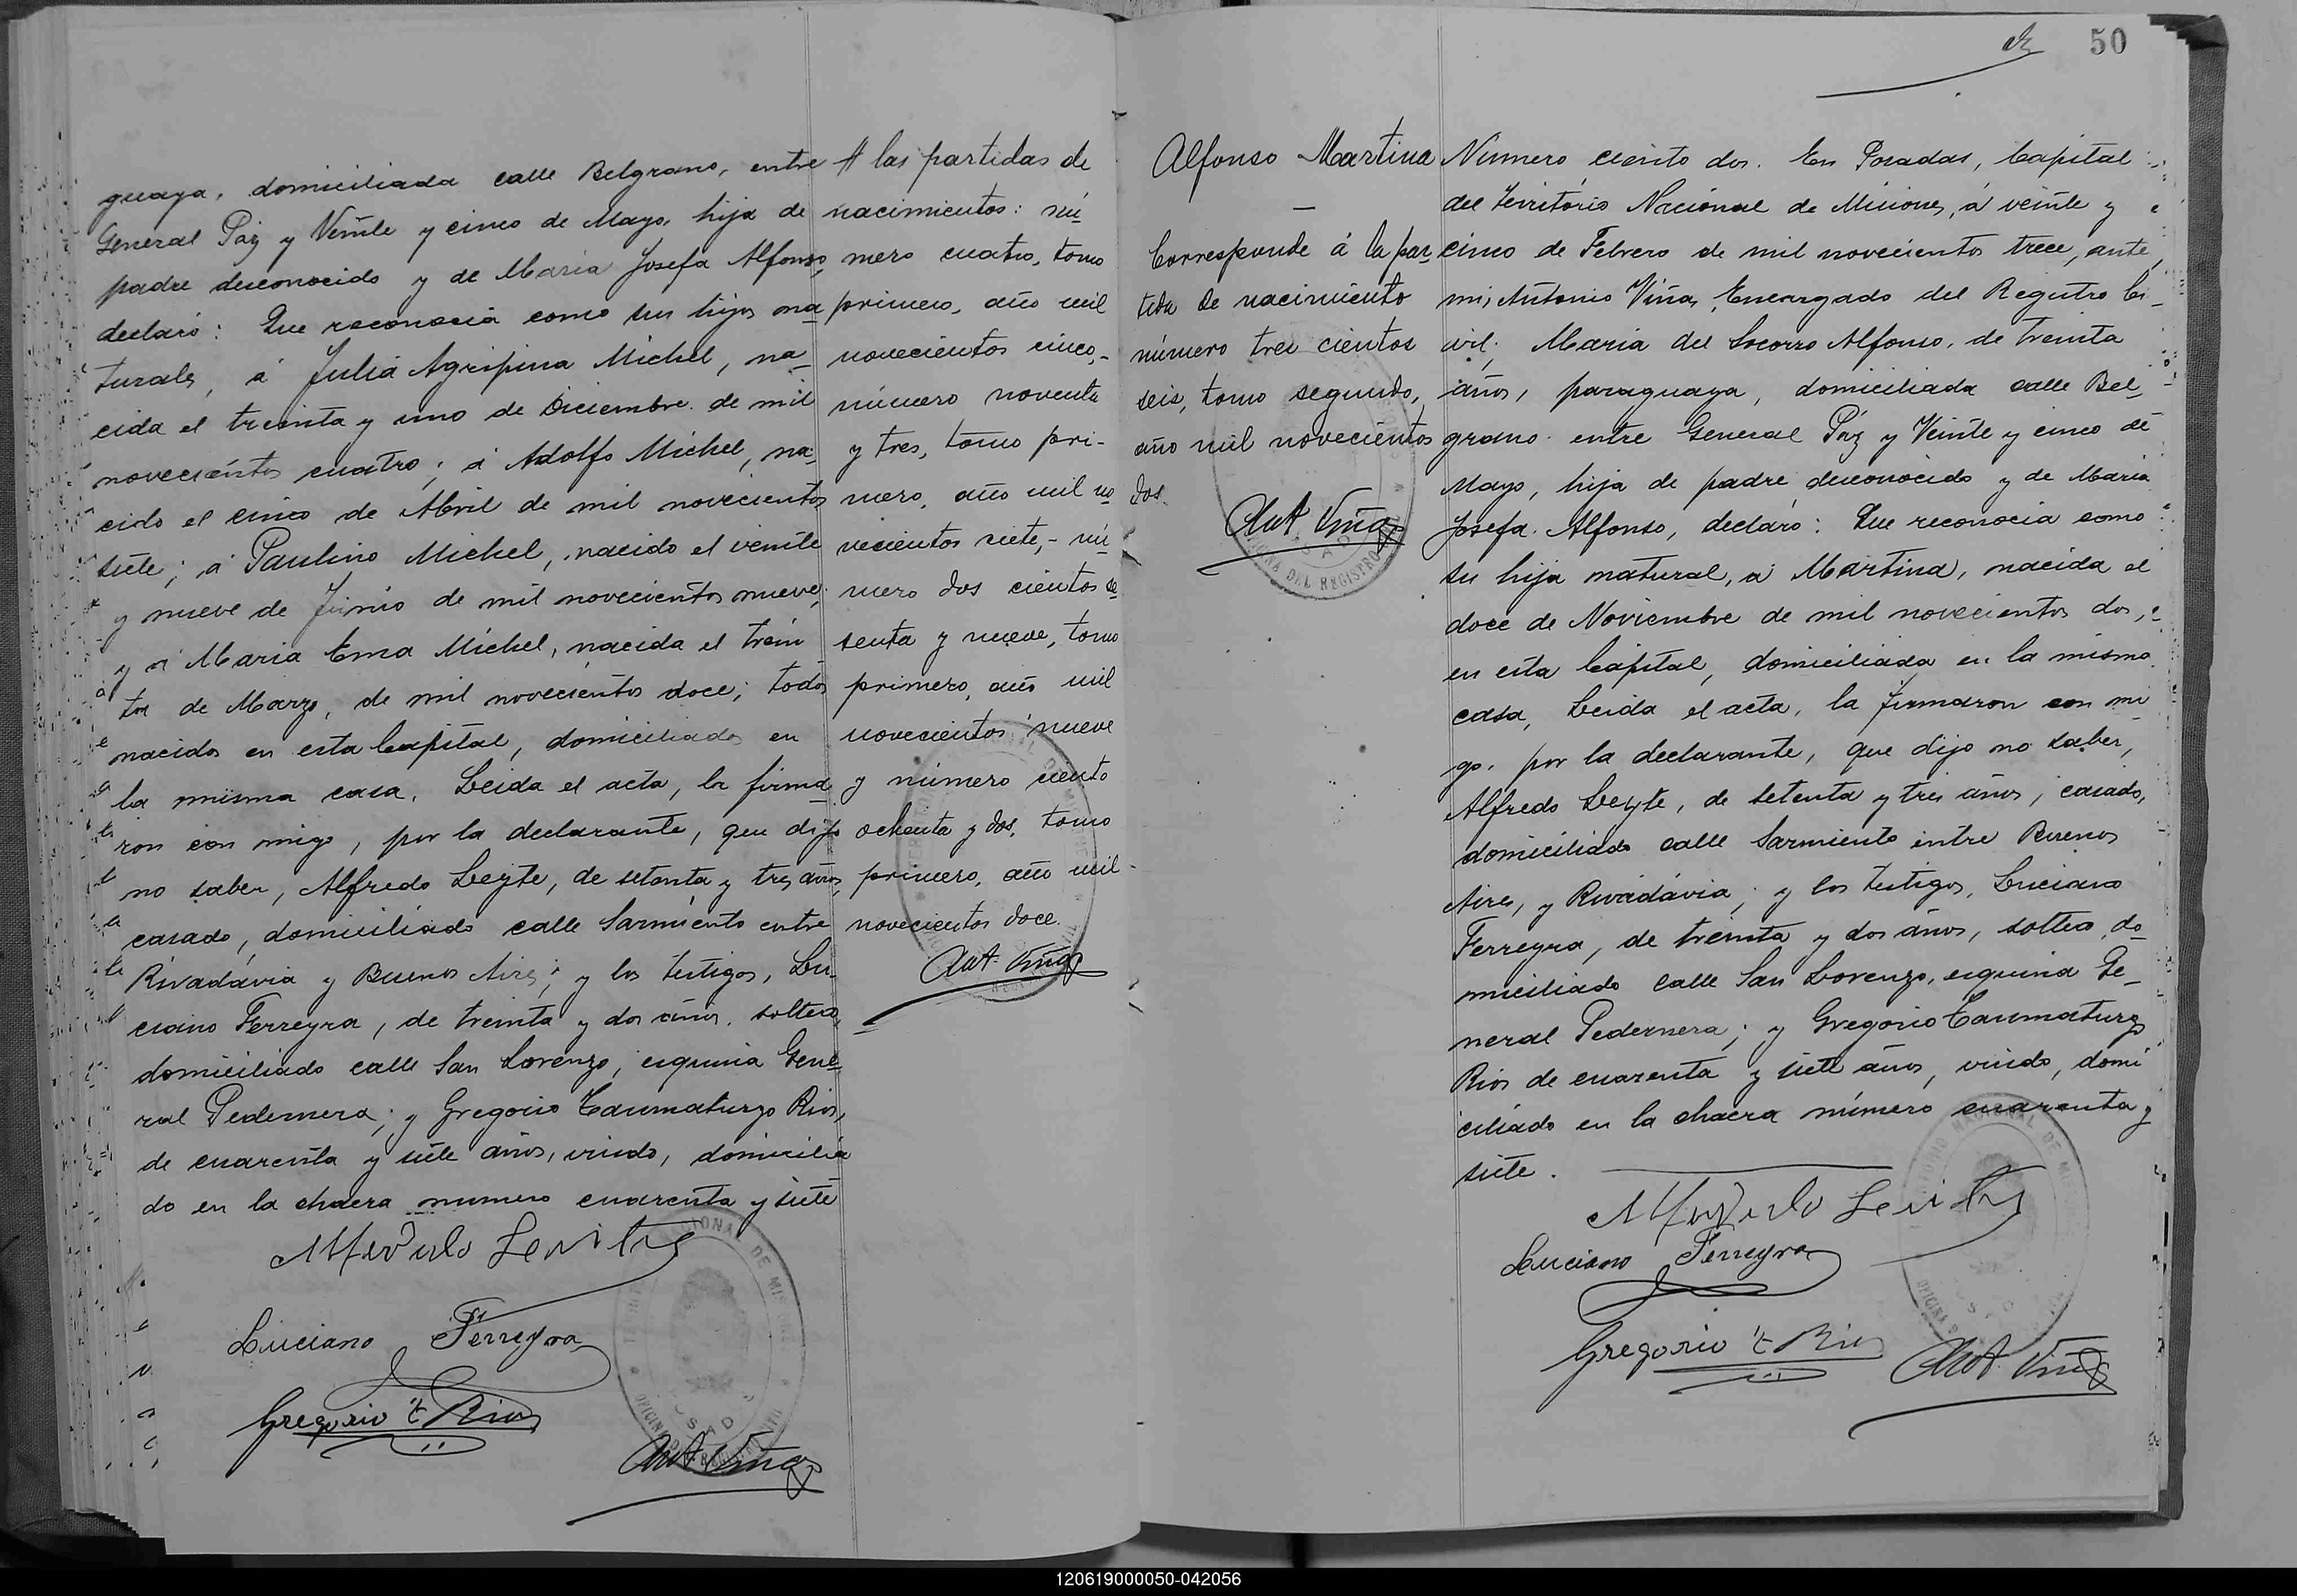 guaya, domiciliada calle Belgrano, entre
General Paz y Veinte y cinco de Mayo, hija de
padre desconocido y de Maria Josefa Alfonso,
declaró: Que reconocia como sus hijos na
turales, á Julia Agripina Michel, na
cida el treinta y uno de Diciembre de mil
novecientos cuatro; á Adolfo Michel, na
cido el cinco de Abril de mil novecientos
siete; á Paulino Michel, nacido el veinte
y nueve de Junio de mil novecientos nueve;
y á Maria Ema Michel, nacida el trein
ta de Marzo, de mil novecientos doce; todos
nacidos en esta Capital, domiciliados en
la misma casa. Leida el acta, la firma
ron con migo, por la declarante, que dijo
no saber, Alfredo Leyte, de setenta y tres años,
casado, domiciliado calle Sarmiento entre
Rivadávia y Buenos Aires; y los testigos, Lu-
ciano Ferreyra, de treinta y dos años, soltero,
domiciliado calle San Lorenzo, esquina Gene
ral Pedernera; y Gregorio Taumaturgo Rios,
de cuarenta y siete años, viudo, domicilia
do en la chacra numero cuarenta y siete
Luciano Ferreyra
Gregorio T Rios
Ant. Viñas
# las partidas de
nacimientos: nú
mero cuatro, tomo
primero, año mil
novecientos cinco,-
número noventa
y tres, tomo pri-
mero, año mil no
vecientos siete,- nú
mero dos cientos se
senta y nueve, tomo
primero, año mil
novecientos nueve
y número ciento
ochenta y dos, tomo
primero, año mil
novecientos doce.
Ant. Viñas
50
Alfonso Martina
Corresponde á la par
tida de nacimiento
número tres cientos
seis, tomo segundo,
año mil novecientos
dos.
Ant Viñas
OFICINA DEL REGISTRO
Número ciento dos. En Posadas, Capital
del Território Nacional de Misiones, á veinte y
cinco de Febrero de mil novecientos trece, ante
mi, Antonio Viñas, Encargado del Registro Ci-
vil, Maria del Socorro Alfonso, de treinta
años, paraguaya, domiciliada calle Bel-
grano entre General Paz y Veinte y cinco de
Mayo, hija de padre desconocido y de Maria
Josefa Alfonso, declaró: Que reconocia como
su hija natural, á Martina, nacida el
doce de Noviembre de mil novecientos dos,
en esta Capital, domiciliada en la misma
casa, Leida el acta, la firmaron con mi
go, por la declarante, que dijo no saber,
Alfredo Leyte, de setenta y tres años, casado,
domiciliado calle Sarmiento entre Buenos
Aires, y Rivadávia; y los testigos, Luciano
Ferreyra, de treinta y dos años, soltero, do
miciliado calle San Lorenzo, esquina Ge-
neral Pedernera; y Gregorio Taumaturgo
Rios de cuarenta y siete años, viudo, domi
ciliado en la chacra número cuarenta y
siete.
Luciano Ferreyra
Gregorio T Rios
Ant. Viñas
120619000050-042056